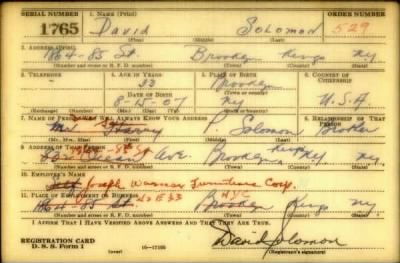 SERIAL NUMBER 1. NAME (Print) ORDER NUMBER
1765 David Solomon 529
2. ADDRESS (Print)
1864-85 St. Brooklyn Kings NY
(Number and street or R. F. D. number) (Town) (County) (State)
3. TELEPHONE 4. AGE IN YEARS 5. PLACE OF BIRTH 6. COUNTRY OF CITIZENSHIP
33 Brooklyn
DATE OF BIRTH
8-15-07 NY U.S.A.
(Exchange) (Number) (Mo.) (Day) (Yr.) (State or country)
7. NAME OF PERSON WHO WILL ALWAYS KNOW YOUR ADDRESS 8. RELATIONSHIP OF THAT PERSON
Harry P. Solomon Brother
(Mr., Mrs., Miss) (First) (Middle) (Last)
9. ADDRESS OF THAT PERSON
Ocean Ave. Brooklyn Kings NY
(Number and street or R. F. D. number) (Town) (County) (State)
10. EMPLOYER'S NAME
Joseph Warner Furniture Corp.
11. PLACE OF EMPLOYMENT OR BUSINESS 40 E 33 NYC
1864-85 St. Brooklyn Kings NY
(Number and street or R. F. D. number) (Town) (County) (State)
I AFFIRM THAT I HAVE VERIFIED ABOVE ANSWERS AND THAT THEY ARE TRUE.
REGISTRATION CARD
D. S. S. Form 1 (over) 16-17105 David Solomon
(Registrant's signature)